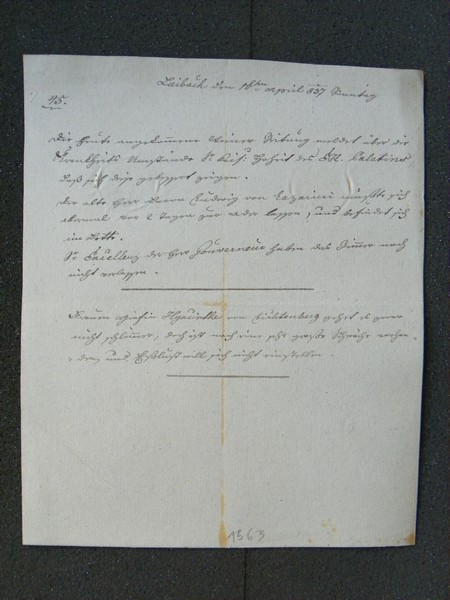 Laibach den 16ten April 837 Sontag
45.
Die heute angekommene Wiener Zeitung meldet über die
Krankheits Umstände Sr Kais: Hoheit des EH. Palatinus
daß sich diese gebessert zeigen.
Der alte Herr Baron Ludwig von Lazarini mußte sich
abermal vor 2 Tagen zur Ader lassen, und befindet sich
im Bette.
Se Excellenz der Herr Gouverneur haben das Zimmer noch
nicht verlassen.
Frauen Gräfin Hyacinthe von Lichtenberg gehet es zwar
nicht schlimmer, doch ist noch eine sehr große Schwäche vorhan-
den, und Eßlust will sich nicht einstellen.
1563